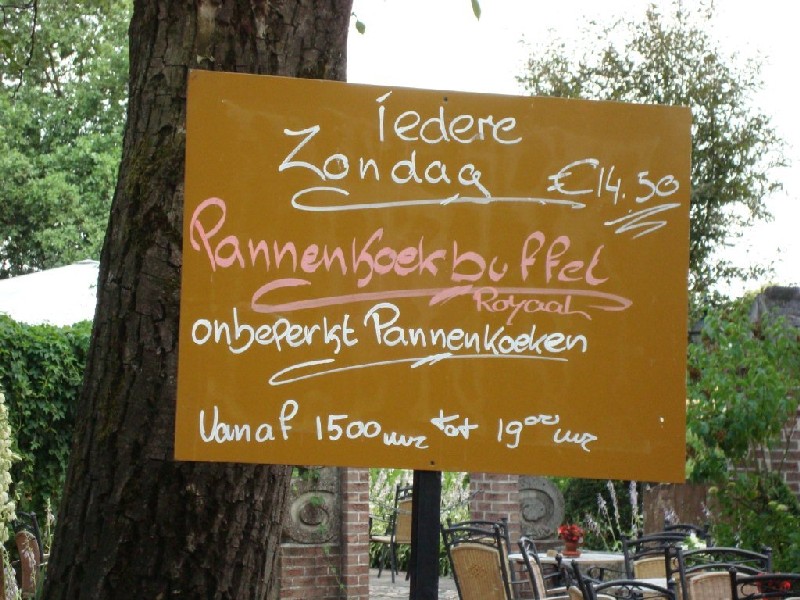 iedere
Zondag €14.50
Pannenkoekbuffet
Royaal
onbeperkt Pannenkoeken
Vanaf 1500 uur tot 19°° uur